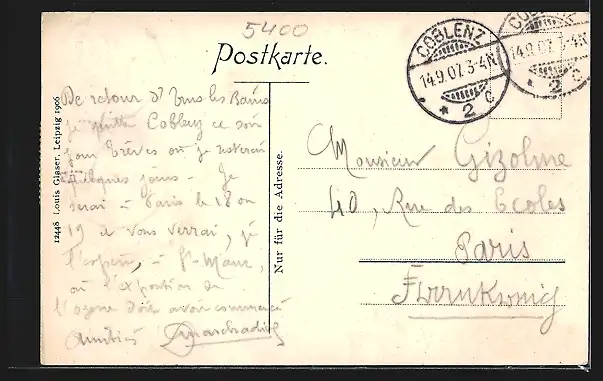 5400
Postkarte.
COBLENZ
14.9.07.3-4N
* 2 c
COBLENZ
14.9.07.3-4N
* 2 c
De retour d'Ems les Bains
je quitte Coblenz ce soir
pour Trèves où je resterai
quelques jours - Je
serai à Paris le 18 ou
19 et vous verrai, je
l'espère, à St-Maur,
où l'exposition de
l'ozone doit avoir commencé
Amitiés
Monsieur Gizolme
40, Rue des Ecoles
Paris
Frankreich
Nur für die Adresse.
12448 Louis Glaser, Leipzig 1906